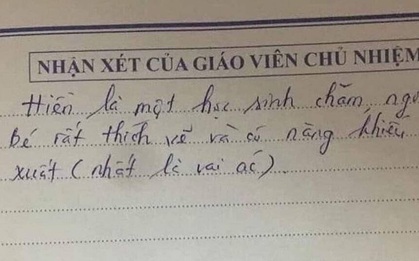 NHẬN XÉT CỦA GIÁO VIÊN CHỦ NHIỆM
Hiền là một học sinh chăm, ngo
Bé rất thích vẽ và có năng khiếu
xuất (nhất là vai ác).